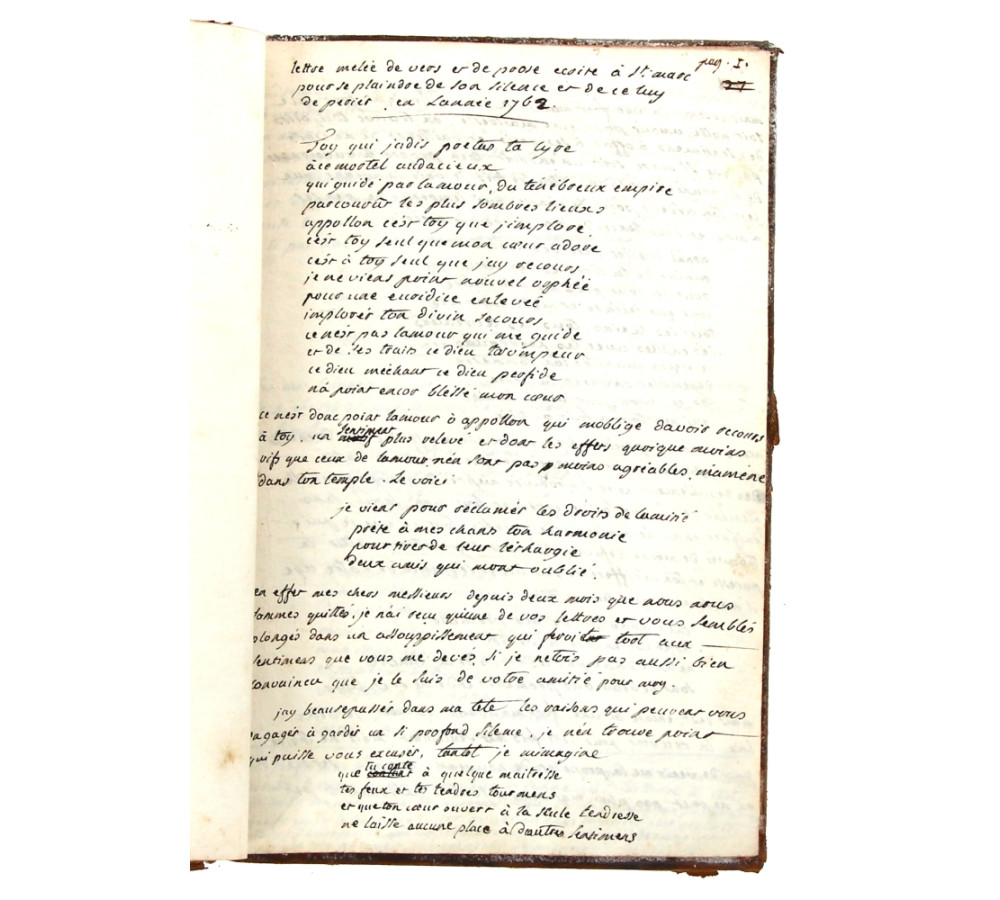 pag. 1.
27
lettre melée de vers et de prose ecrite à St. marc
pour se plaindre de son silence et de celuy
de perier en Lannée 1762.
Toy qui jadis pretas ta lyre
à ce mortel audacieux
qui guidé par lamour, du ténébreux empire
parcourut les plus sombres lieux
appollon cest toy que jimplore
cest toy seul que mon cœur adore
cest à toy seul que jay recours
je ne viens point nouvel orphée
pour une euridice enlevée
implorer ton divin secours
ce nest pas lamour qui me guide
et de ses traits ce dieu trompeur
ce dieu méchant ce dieu perfide
nà point encor blessé mon cœur
ce nest donc point lamour ô appollon qui moblige davoir recours
à toy. un sentiment plus relevé et dont les effets quoique moins
vifs que ceux de lamour, nén sont pas moins agréables, mamène
dans ton temple. Le voici
je viens pour réclamer les droits de lamitié
prête à mes chants ton harmonie
pour tirer de leur léthargie
deux amis qui mont oublié.
en effet mes chers messieurs depuis deux mois que nous nous
sommes quittés, je nài reçu quune de vos lettres et vous semblés
plongés dans un assouppissement qui feroit tort aux
sentimens que vous me devés, si je netois pas aussi bien
convaincu que je le suis de votre amitié pour moy.
jay beau repasser dans ma tete les raisons qui peuvent vous
engager à garder un si profond silence, je nén trouve point
qui puisse vous excuser, tantot je mimagine
que tu conte à quelque maitresse
tes feux et tes tendres tourmens
et que ton cœur ouvert à la seule tendresse
ne laisse aucune place à dautres sentimens